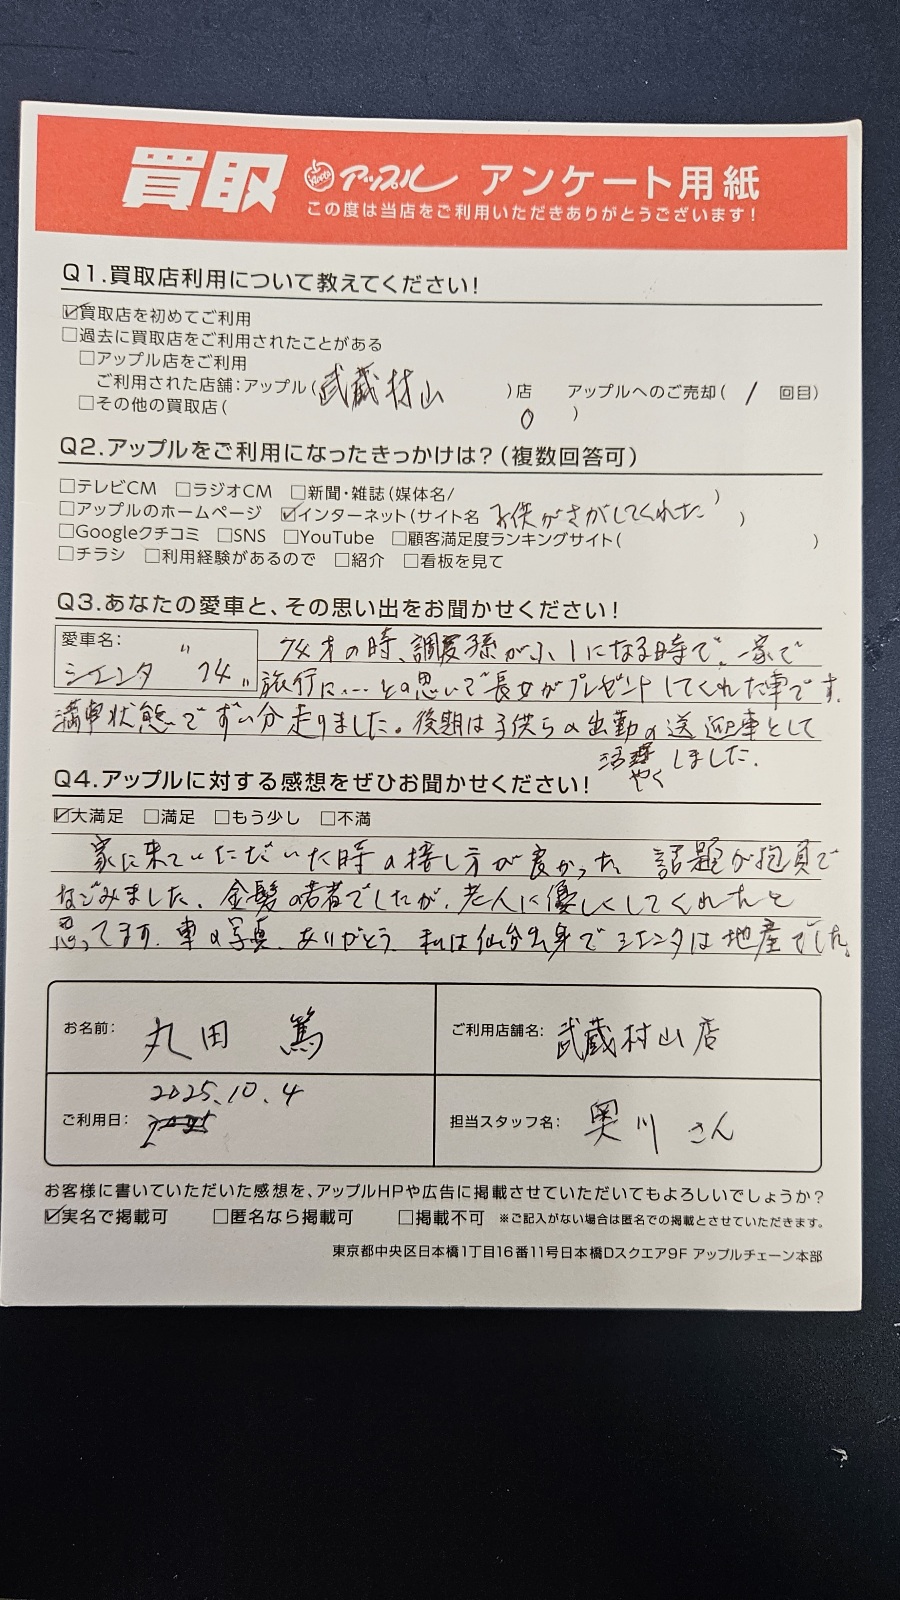 買取 アップル アンケート用紙
この度は当店をご利用いただきありがとうございます！
Q1.買取店利用について教えてください！
☑買取店を初めてご利用
□過去に買取店をご利用されたことがある
□アップル店をご利用
ご利用された店舗：アップル（武蔵村山）店 アップルへのご売却（1回目）
□その他の買取店（ 0 ）
Q2.アップルをご利用になったきっかけは？（複数回答可）
□テレビCM □ラジオCM □新聞・雑誌（媒体名/ ）
□アップルのホームページ ☑インターネット（サイト名 子供がさがしてくれた ）
□Googleクチコミ □SNS □YouTube □顧客満足度ランキングサイト（ ）
□チラシ □利用経験があるので □紹介 □看板を見て
Q3.あなたの愛車と、その思い出をお聞かせください！
愛車名：
シエンタ "74" 
74才の時、調度孫が になる時で、一家で
旅行に…との思いで長女がプレゼントしてくれた車です。
満車状態でずい分走りました。後期は子供らの出勤の送迎車として
活躍しました。
やく
Q4.アップルに対する感想をぜひお聞かせください！
☑大満足 □満足 □もう少し □不満
家に来ていただいた時の接し方が良かった 話題が豊でなごみました。
金髪の若者でしたが、老人に優しくしてくれたと
思ってます。車の写真、ありがとう 私は仙台出身でシエンタは地産でした。
お名前： 丸田 篤
ご利用店舗名： 武蔵村山店
ご利用日： 2025.10.4
担当スタッフ名： 奥川 さん
お客様に書いていただいた感想を、アップルHPや広告に掲載させていただいてもよろしいでしょうか？
☑実名で掲載可 □匿名なら掲載可 □掲載不可 ※ご記入がない場合は匿名での掲載とさせていただきます。
東京都中央区日本橋1丁目16番11号日本橋Dスクエア9F アップルチェーン本部